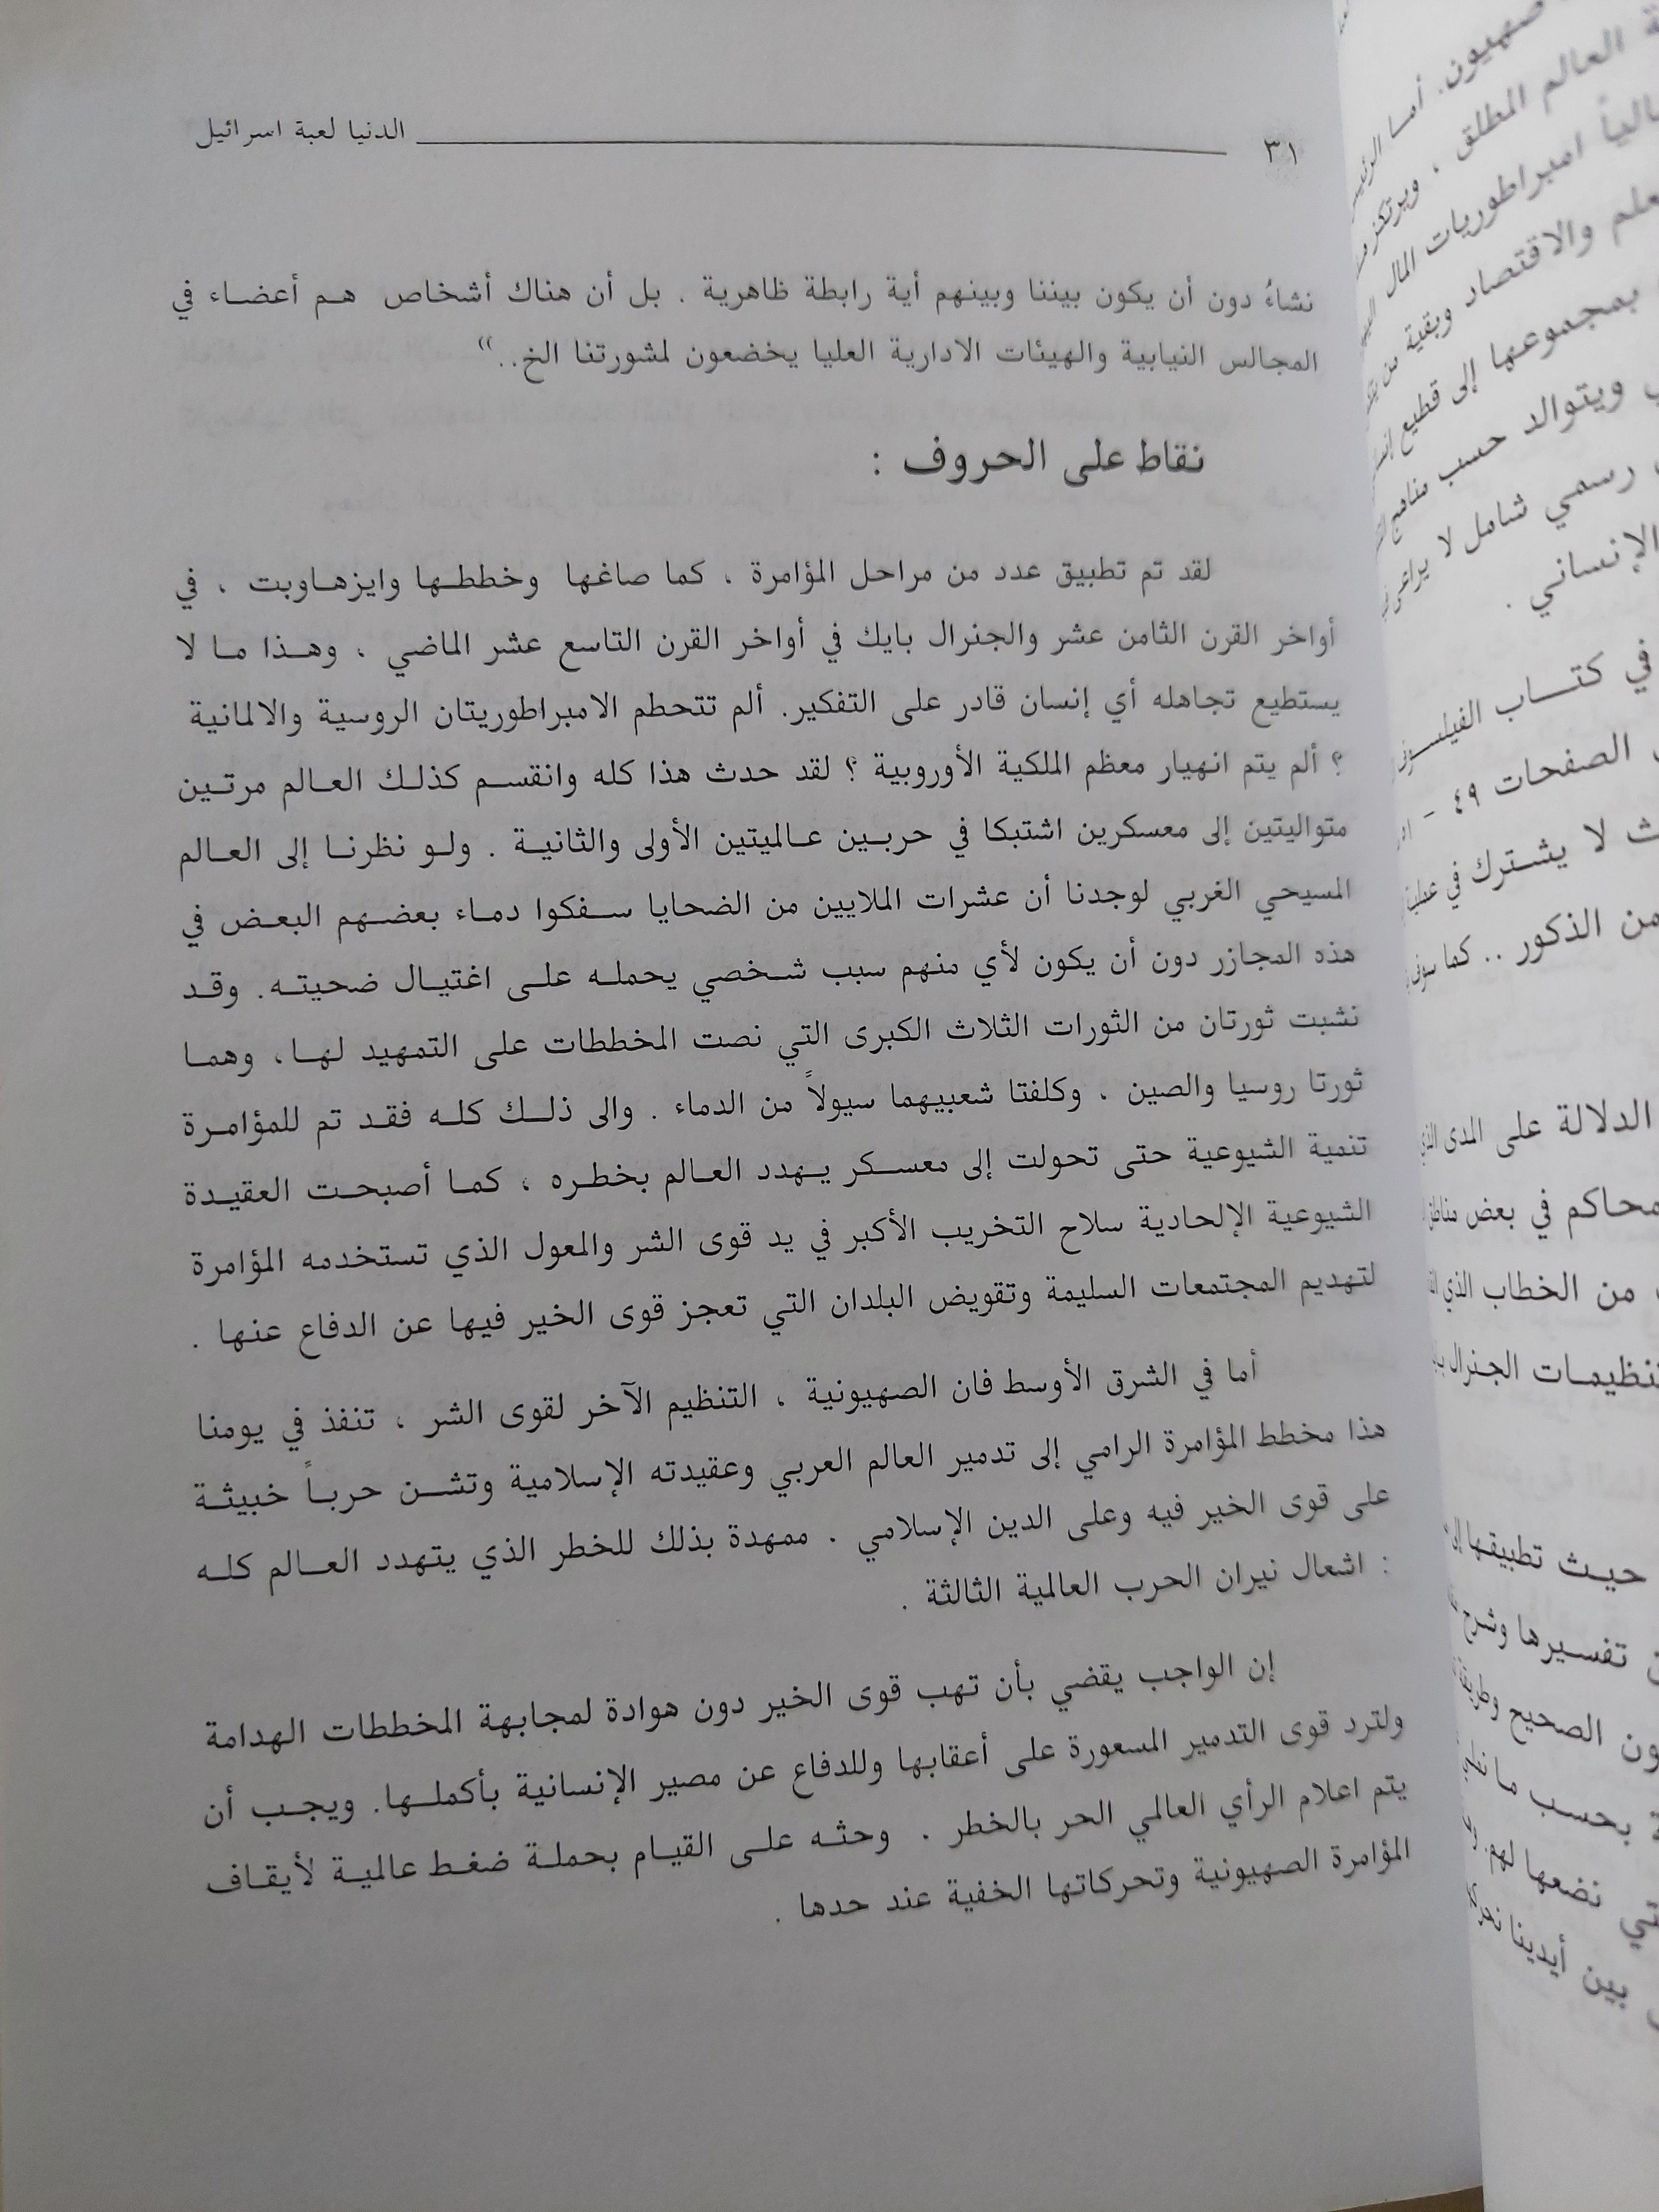 ٣١ الدنيا لعبة اسرائيل
نشاءُ دون أن يكون بيننا وبينهم أية رابطة ظاهرية . بل أن هناك أشخاص هم أعضاء في
المجالس النيابية والهيئات الادارية العليا يخضعون لمشورتنا الخ..”
نقاط على الحروف :
لقد تم تطبيق عدد من مراحل المؤامرة ، كما صاغها وخططها وايزهاوبت ، في
أواخر القرن الثامن عشر والجنرال بايك في أواخر القرن التاسع عشر الماضي ، وهذا ما لا
يستطيع تجاهله أي إنسان قادر على التفكير. ألم تتحطم الامبراطوريتان الروسية والالمانية
؟ ألم يتم انهيار معظم الملكية الأوروبية ؟ لقد حدث هذا كله وانقسم كذلك العالم مرتين
متواليتين إلى معسكرين اشتبكا في حربين عالميتين الأولى والثانية . ولو نظرنا إلى العالم
المسيحي الغربي لوجدنا أن عشرات الملايين من الضحايا سفكوا دماء بعضهم البعض في
هذه المجازر دون أن يكون لأي منهم سبب شخصي يحمله على اغتيال ضحيته. وقد
نشبت ثورتان من الثورات الثلاث الكبرى التي نصت المخططات على التمهيد لها، وهما
ثورتا روسيا والصين ، وكلفتا شعبيهما سيولاً من الدماء . والى ذلك كله فقد تم للمؤامرة
تنمية الشيوعية حتى تحولت إلى معسكر يهدد العالم بخطره ، كما أصبحت العقيدة
الشيوعية الإلحادية سلاح التخريب الأكبر في يد قوى الشر والمعول الذي تستخدمه المؤامرة
لتهديم المجتمعات السليمة وتقويض البلدان التي تعجز قوى الخير فيها عن الدفاع عنها .
أما في الشرق الأوسط فان الصهيونية ، التنظيم الآخر لقوى الشر ، تنفذ في يومنا
هذا مخطط المؤامرة الرامي إلى تدمير العالم العربي وعقيدته الإسلامية وتشن حرباً خبيثة
على قوى الخير فيه وعلى الدين الإسلامي . ممهدة بذلك للخطر الذي يتهدد العالم كله
: اشعال نيران الحرب العالمية الثالثة .
إن الواجب يقضي بأن تهب قوى الخير دون هوادة لمجابهة المخططات الهدامة
ولترد قوى التدمير المسعورة على أعقابها وللدفاع عن مصير الإنسانية بأكملها. ويجب أن
يتم اعلام الرأي العالمي الحر بالخطر . وحثه على القيام بحملة ضغط عالمية لأيقاف
المؤامرة الصهيونية وتحركاتها الخفية عند حدها .
صهيون. أما
العالم المطلق ، ويرتكز
امبراطوريات المال
والاقتصاد وبقية من
بمجموعها إلى قطيع
ويتوالد حسب مناهج
رسمي شامل لا يراعى
الإنساني .
في كتاب
الصفحات ٤٩ -
لا يشترك في
من الذكور .. كما
الدلالة على المدى
محاكم في بعض
من الخطاب الذي
الجنرال
حيث تطبيقها
تفسيرها وشرح
الصحيح
بحسب ما
نضعها لهم
بين أيدينا